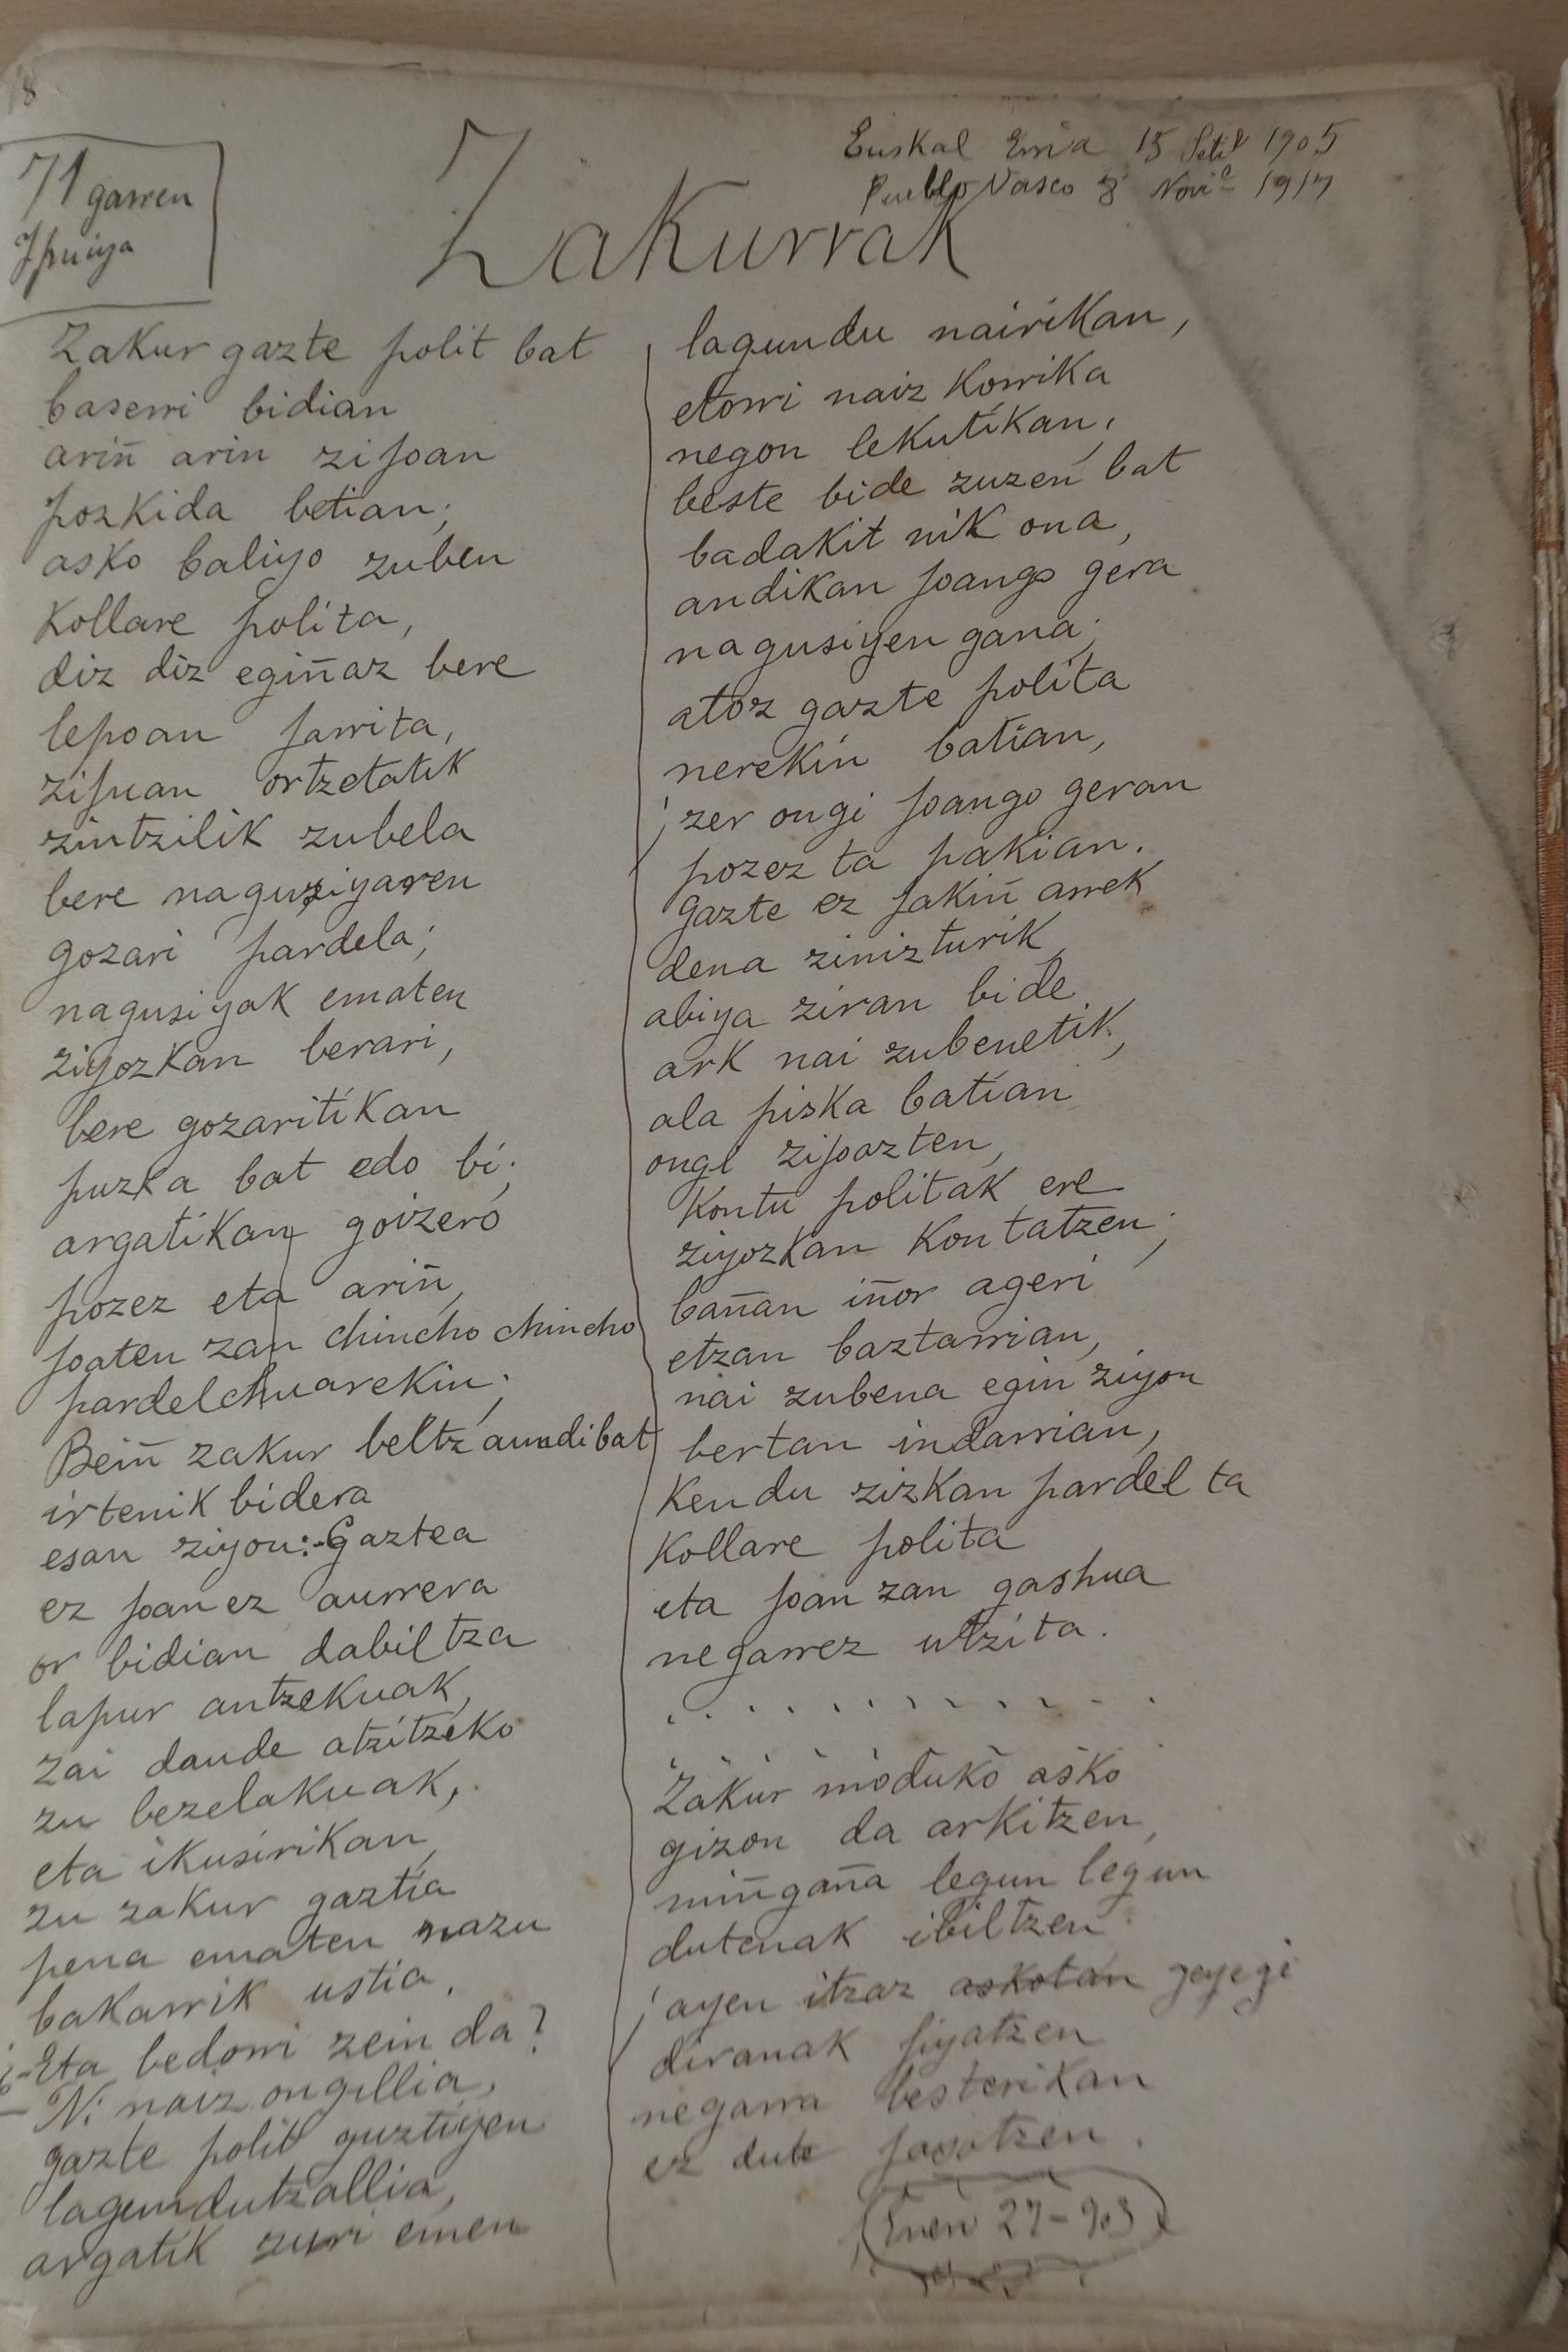 71 garren
Ipuiya
Euskal Erria 15 Setbe 1905
Pueblo Vasco 8 Novie 1917
Zakurrak
Zakur gazte polit bat
baserri bidian
ariñ arin zijoan
pozkida betian;
asko baliyo zuben
Kollare polita,
diz diz egiñaz bere
lepoan jarrita,
zijuan ortzetatik
zintzilik zubela
bere naguziyaren
gozari pardela;
nagusiyak ematen
ziyozkan berari,
bere gozaritikan
puzka bat edo bi;
argatikan goizero
pozez eta ariñ,
joaten zan chincho chincho
pardelchuarekin;
Beiñ zakur beltz aundi bat
irtenik bidera
esan ziyon:-Gaztea
ez joan ez aurrera
or bidian dabiltza
lapur antzekuak,
zai daude atzitzeko
zu bezelakuak,
eta ikusirikan,
zu zakur gaztia
pena ematen nazu
bakarrik ustia.
¿-Eta bedorri zein da?
-Ni naiz ongillia,
gazte polit guztiyen
lagundutzallia,
argatik zuri emen
lagundu nairikan,
etorri naiz korrika
negon lekutikan,
beste bide zuzen bat
badakit nik ona,
andikan joango gera
nagusiyen gana;
atoz gazte polita
nerekin batian,
¡zer ongi joango geran
pozez ta pakian.
Gazte ez jakiñ arrek
dena zinizturik,
abiya ziran bide
ark nai zubenetik,
ala piska batian
ongi zijoazten,
Kontu politak ere
ziyozkan Kontatzen;
bañan iñor ageri
etzan baztarrian,
nai zubena egin ziyon
bertan indarrian,
Kendu zizkan pardel ta
Kollare polita
eta joan zan gashua
negarrez utzita.
. . . . . . . . . . . .
Zakur moduko asko
gizon da arkitzen,
miñgaña legun legun
dutenak ibiltzen
¡ayen itzaz askotan geyegi
diranak fiyatzen
negarra besterikan
ez dute jasotzen.
Enero 27-903